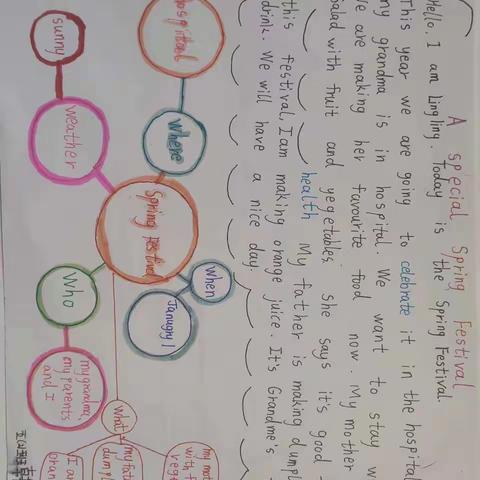 A special Spring Festival
Hello. I am Lingling. Today is the Spring Festival.
This year we are going to celebrate it in the hospital
my grandma is in hospital. We want to stay
We are making her favourite food now. My mother
salad with fruit and yegetables. She says it's good
health My father is making
this festival. I am making orange juice. It's Grandme's
drink. We will have a nice day
sunny
weather
Where
Spring Festival
when
Janugry 1
Who
my grandma,
my parents
and I
what
my fat
dump
I am